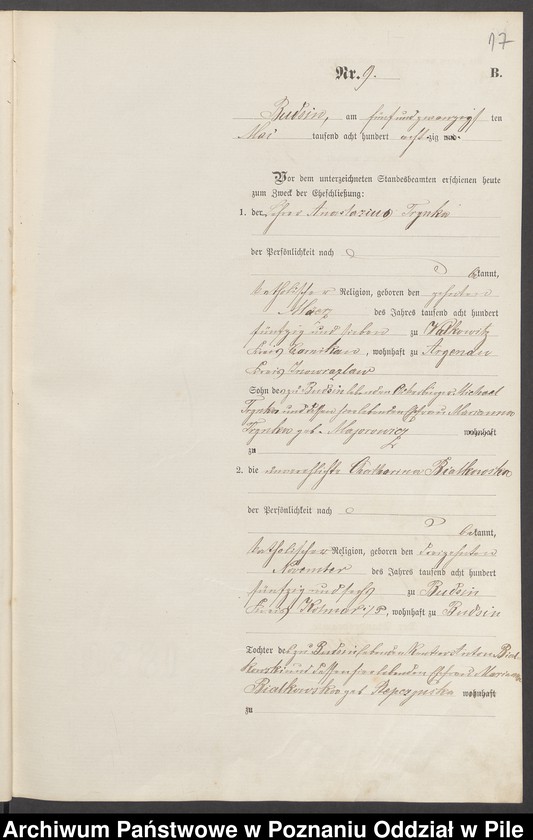 17
Nr. 9. B.
Budsin, am fünfundzwanzigsten
Mai tausend acht hundert achtzig
Vor dem unterzeichneten Standesbeamten erschienen heute
zum Zweck der Eheschließung:
1. der Lehrer Anastazius Trynka
der Persönlichkeit nach
bekannt,
katholischer Religion, geboren den zehnten
März des Jahres tausend acht hundert
fünfzig und sieben zu Walkowitz
Kreis Czarnikau, wohnhaft zu Argenau
Kreis Inowrazlaw
Sohn des zu Budsin lebenden Michael
Trynka und dessen Ehefrau Marianna
Trynka geb. Majorowicz wohnhaft
zu
2. die unverehelichte Catharina Bialkowska
der Persönlichkeit nach
bekannt,
katholischer Religion, geboren den dreizehnten
November des Jahres tausend acht hundert
fünfzig und sechs zu Budsin
Kreis Kolmar i/P, wohnhaft zu Budsin
Tochter des zu Budsin lebenden Anton Bial-
kowski und dessen Ehefrau Marianna
Bialkowska geb. wohnhaft
zu
Archiwum Państwowe w Poznaniu Oddział w Pile